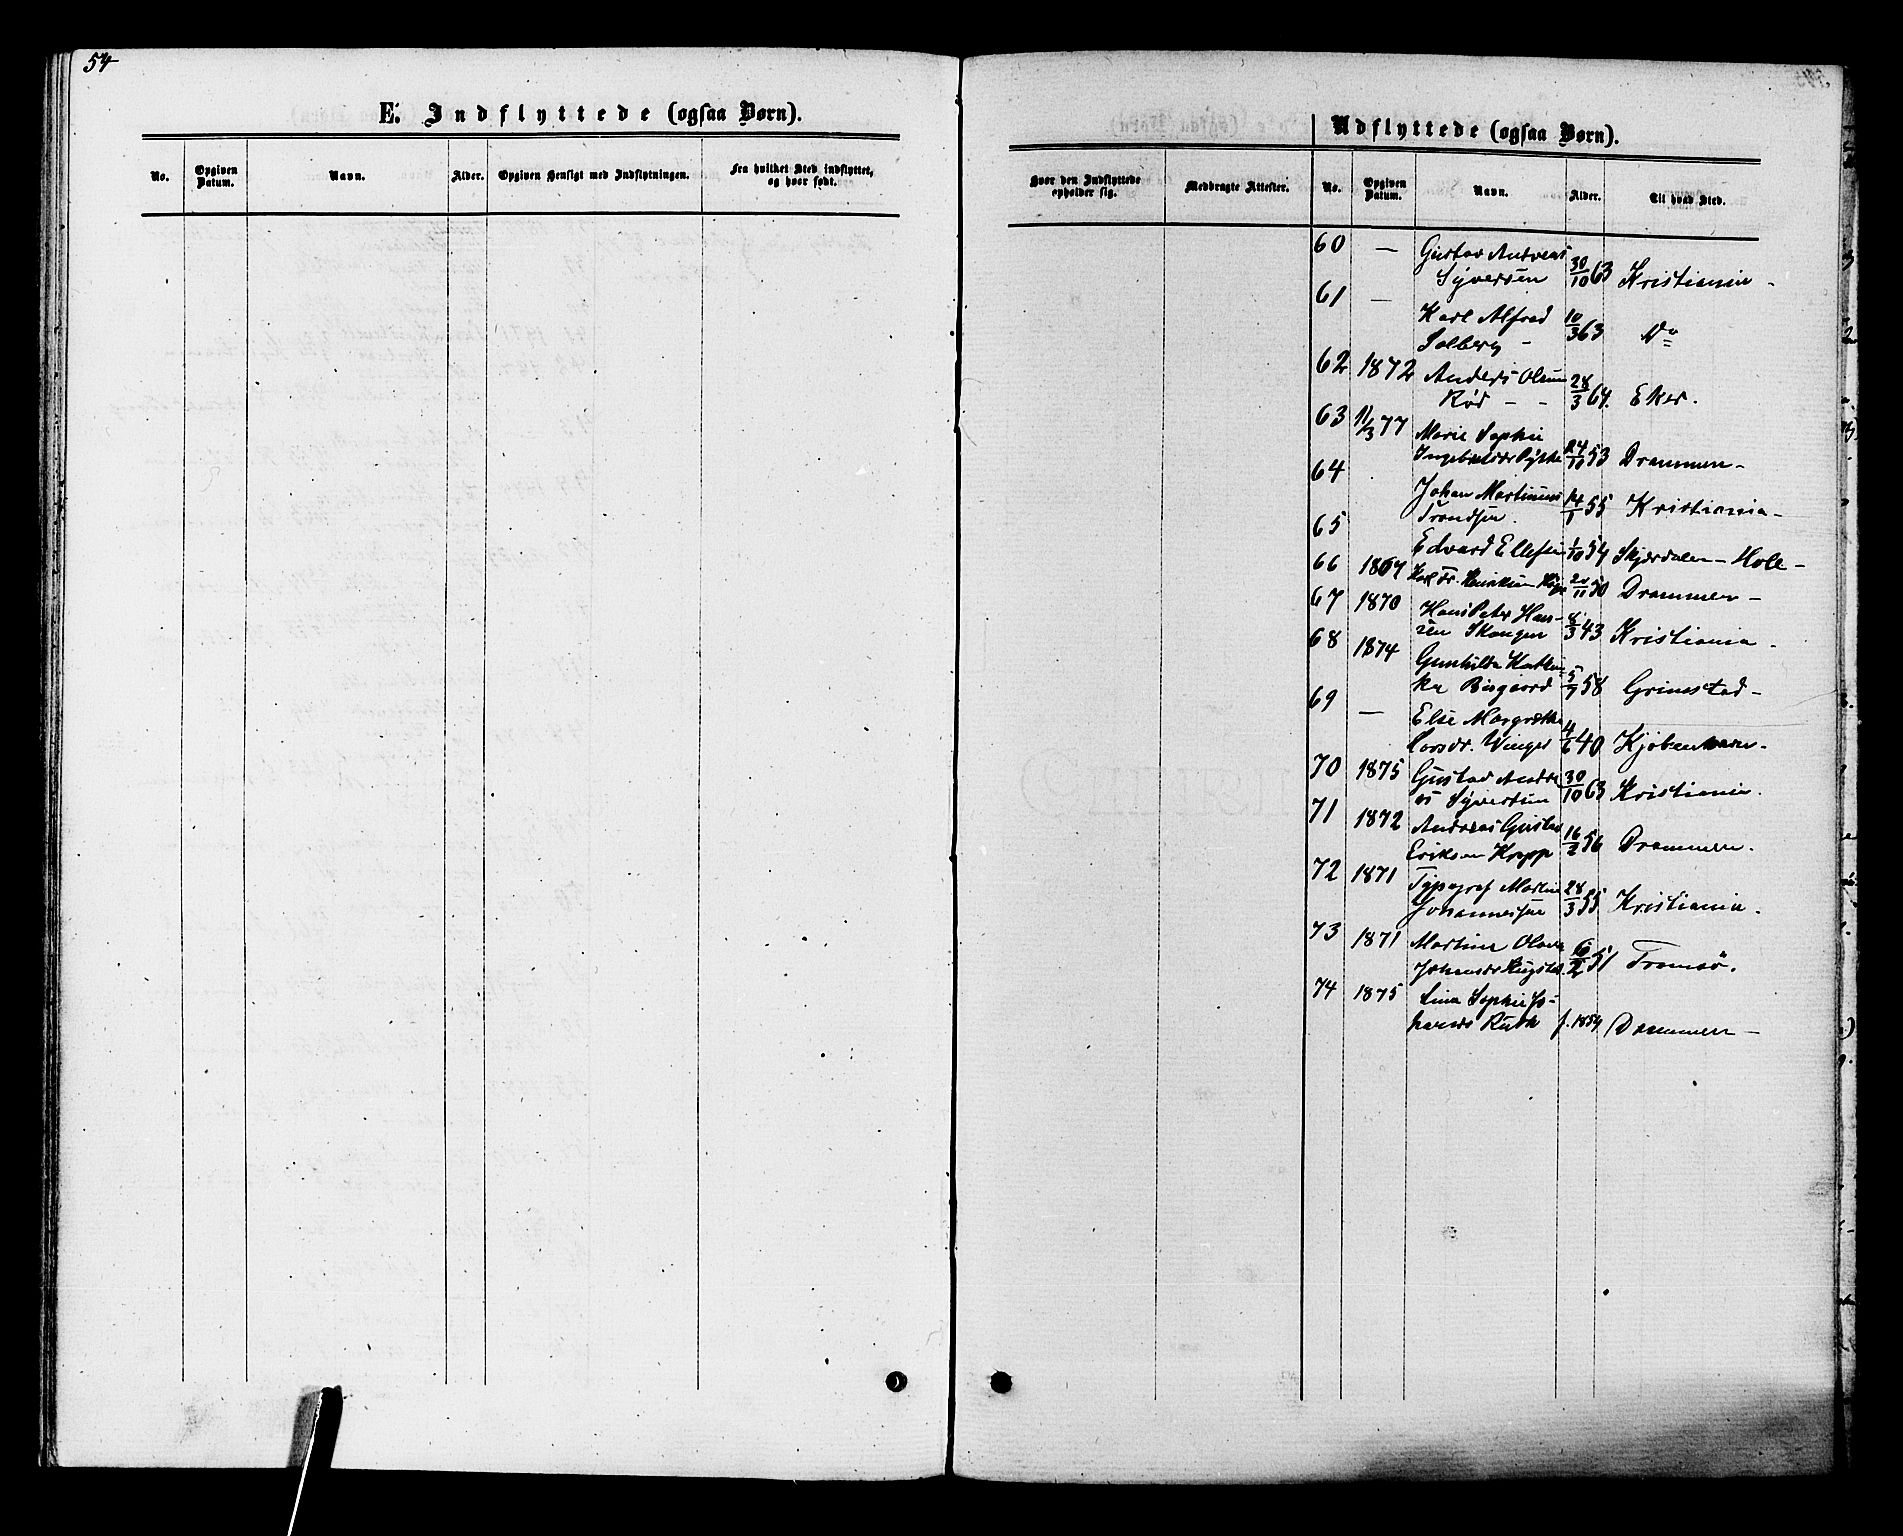 54
E. Indflyttede (ogsaa Børn).
No.
Opgiven Datum.
Navn.
Alder.
Opgiven Hensigt med Indflytningen.
Fra hvilket Sted indflyttet, og hvor født.
Udflyttede (ogsaa Børn).
Hvor den Indflyttede opholder sig.
Medbragte Attester.
No.
Opgiven Datum.
Navn.
Alder.
Til hvad Sted.
60 — Gustav Andreas
Syversen 30/10 63 Kristiania -
61 — Karl Alfred
Solberg - 10/3 63 Do
62 1872 Anders Olsen
Rød - - 28/3 64. Eker.
63 11/3 77 Marie Sophie
24/10 53 Drammen -
64 Johan Martinus
Trondsen. 14/1 55 Kristiania -
65 Edvard Ellefsen 1/10 54 Skjærdalen - Hole -
66 1867 Karl Fr. Henriksen 50 Drammen -
67 1870 Hans Peter Han-
sen Skougen 8/3 43 Kristiania -
68 1874 Gunhilda Kathin-
ka Bisgaard 5/9 58 Grimstad -
69 — Else Margrethe
Larsdr. Winger 4/6 40 Kjøbenhavn -
70 1875 Gustav Andre
as Syversen 30/10 63 Kristiania.
71 1872 Andreas Gustav
Eriksen Kopp 16/2 56 Drammen.
72 1871 Typograf Martin
Johannessen 28/3 55 Kristiania.
73 1871 Martine Olava
51 Tromsø.
74 1875 Lina Sophie Jo-
hansdr Ruth f. 1854 Drammen -